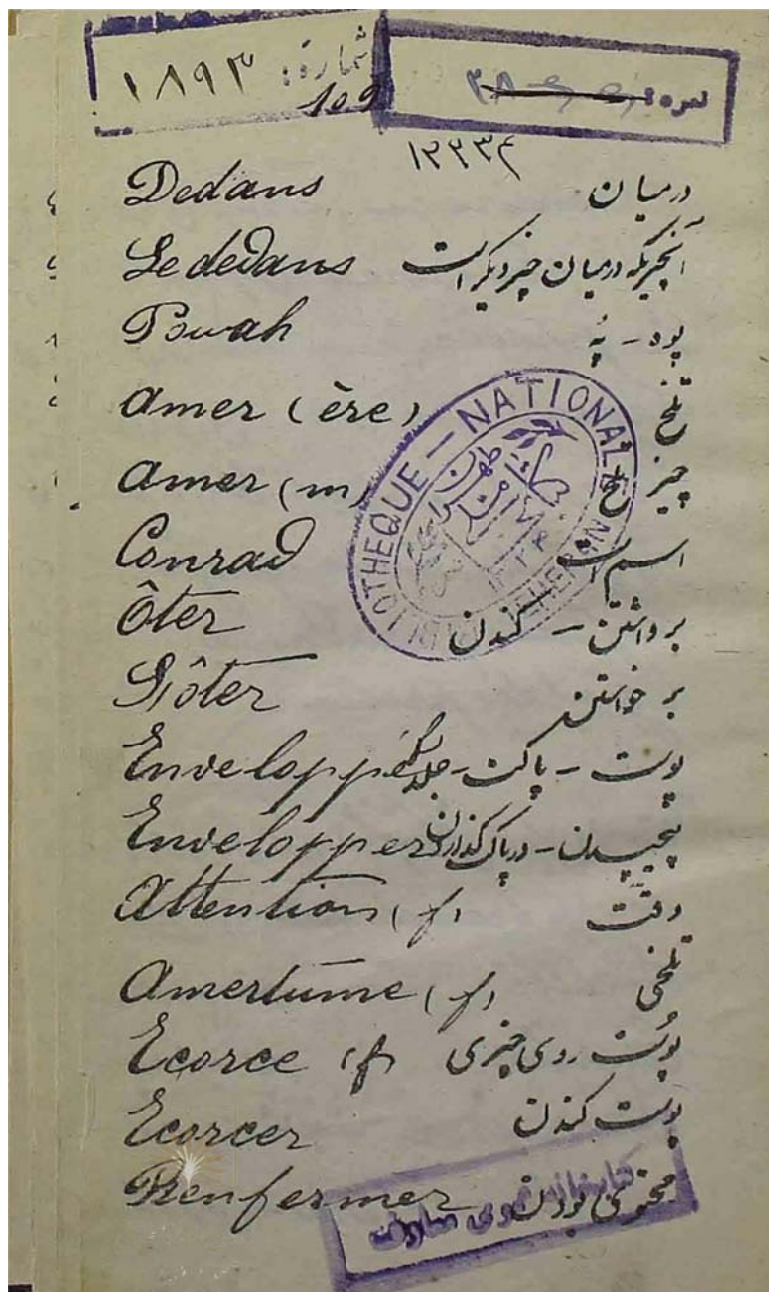 شماره: ۱۸۹۳
نمره
109
۱۲۳۳۴
Dedans درمیان
Le dedans آنچیزیکه درمیان چیز دیگر است
Pouah پوه - پُه
Amer (ère) تلخ
Amer (m) چیز تلخ
Conrad اسم است
Ôter برداشتن - کندن
S'ôter برخواستن
Enveloppe پوست - پاکت - جلد
Envelopper پیچیدن - درپاکت گذاردن
Attention (f) دقّت
Amertume (f) تلخی
Ecorce (f) پوست روی چیزی
Ecorcer پوست کندن
Renfermer محتوی بودن
BIBLIOTHEQUE - NATIONALE TEHERAN